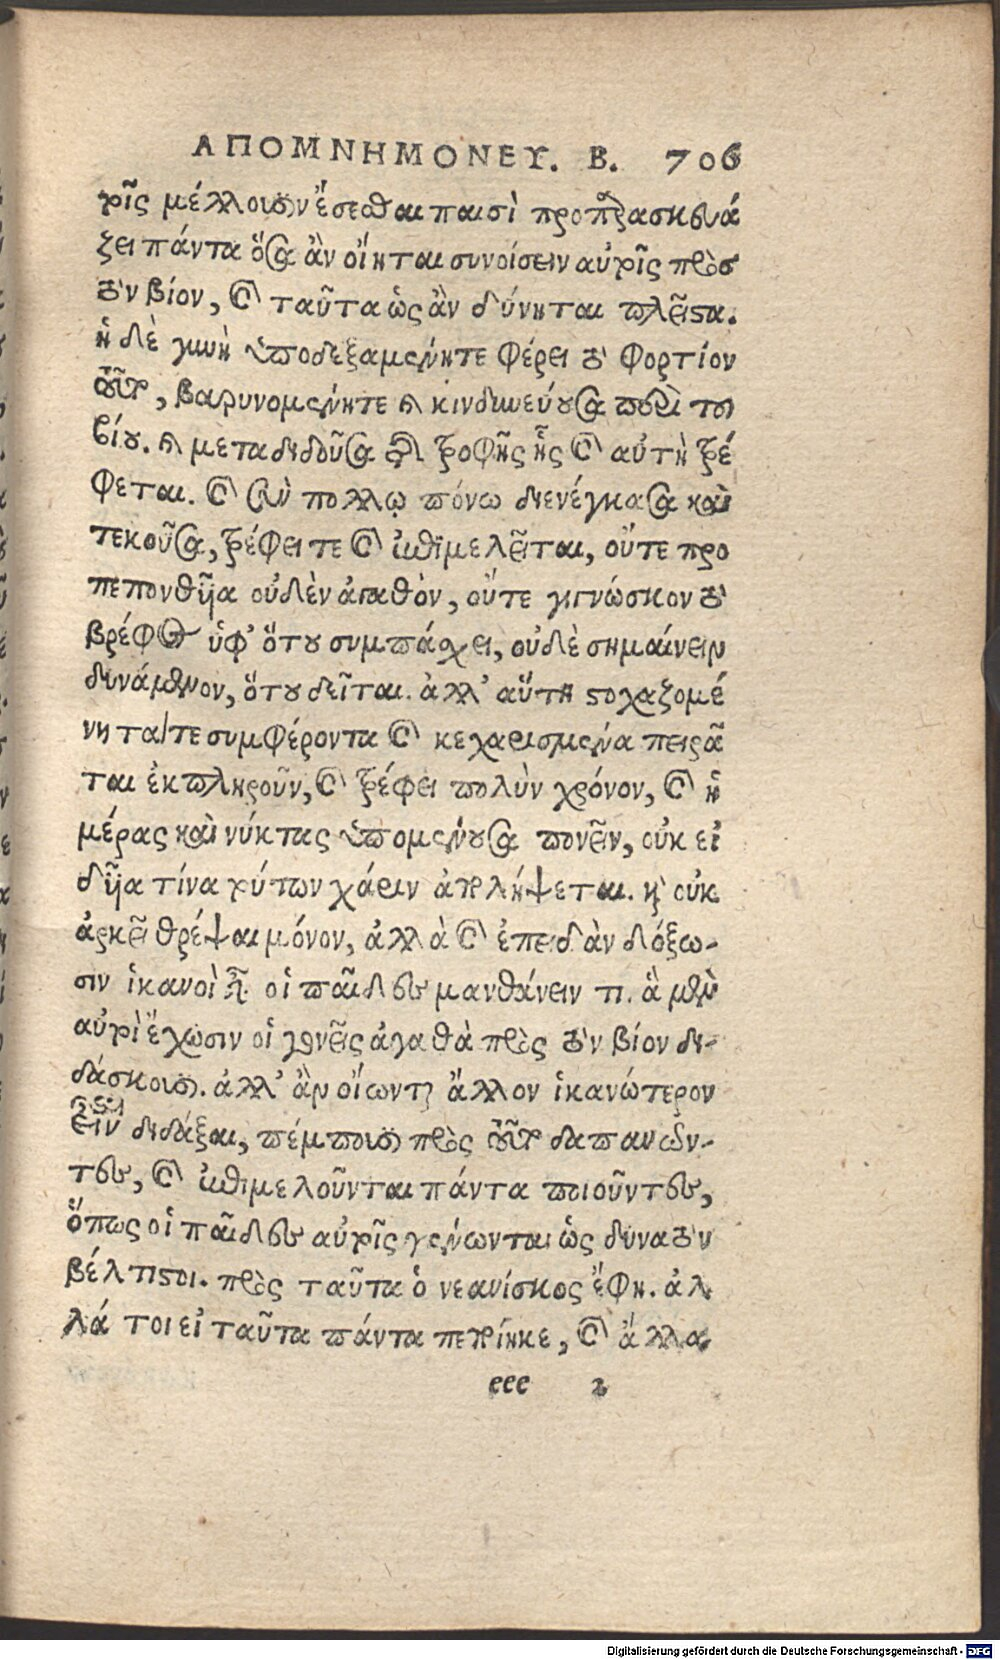 ΑΠΟΜΝΗΜΟΝΕΥ. Β. 706
τοῖς μέλλουσιν ἔσεσθαι παισὶ προπαρασκευά
ζει πάντα ὅσα ἂν οἴηται συνοίσειν αὐτοῖς πρὸς
τὸν βίον, καὶ ταῦτα ὡς ἂν δύνηται πλεῖστα.
ἡ δὲ γυνὴ ὑποδεξαμένη τε φέρει τὸ φορτίον
τοῦτο, βαρυνομένη τε καὶ κινδυνεύουσα περὶ τοῦ
βίου. καὶ μεταδιδοῦσα τῆς τροφῆς ἧς καὶ αὐτὴ τρέ
φεται. καὶ σὺν πολλῷ πόνῳ διενέγκασα καὶ
τεκοῦσα, τρέφει τε καὶ ἐπιμελεῖται, οὔτε προ
πεπονθυῖα οὐδὲν ἀγαθὸν, οὔτε γιγνώσκον τὸ
βρέφος ὑφ' ὅτου συμπάσχει, οὐδὲ σημαίνειν
δυνάμενον, ὅτου δεῖται. ἀλλ' αὕτη στοχαζομέ
νη τά τε συμφέροντα καὶ κεχαρισμένα πειρᾶ
ται ἐκπληροῦν, καὶ τρέφει πολὺν χρόνον, καὶ ἡ
μέρας καὶ νύκτας ὑπομένουσα πονεῖν, οὐκ εἰ
δυῖα τίνα τούτων χάριν ἀπολήψεται. καὶ οὐκ
ἀρκεῖ θρέψαι μόνον, ἀλλὰ καὶ ἐπειδὰν δόξω-
σιν ἱκανοὶ εἶναι οἱ παῖδες μανθάνειν τι. ἃ μὲν
αὐτοὶ ἔχωσιν οἱ γονεῖς ἀγαθὰ πρὸς τὸν βίον δι-
δάσκουσιν. ἀλλ' ἂν οἴωνται ἄλλον ἱκανώτερον
εἶναι διδάξαι, πέμπουσι πρὸς τοῦτον δαπανῶν-
τες, καὶ ἐπιμελοῦνται πάντα ποιοῦντες,
ὅπως οἱ παῖδες αὐτοῖς γένωνται ὡς δυνατὸν
βέλτιστοι. πρὸς ταῦτα ὁ νεανίσκος ἔφη. ἀλ
λά τοι εἰ ταῦτα πάντα πεποίηκε, καὶ ἄλλα
eee 2
Digitalisierung gefördert durch die Deutsche Forschungsgemeinschaft - DFG